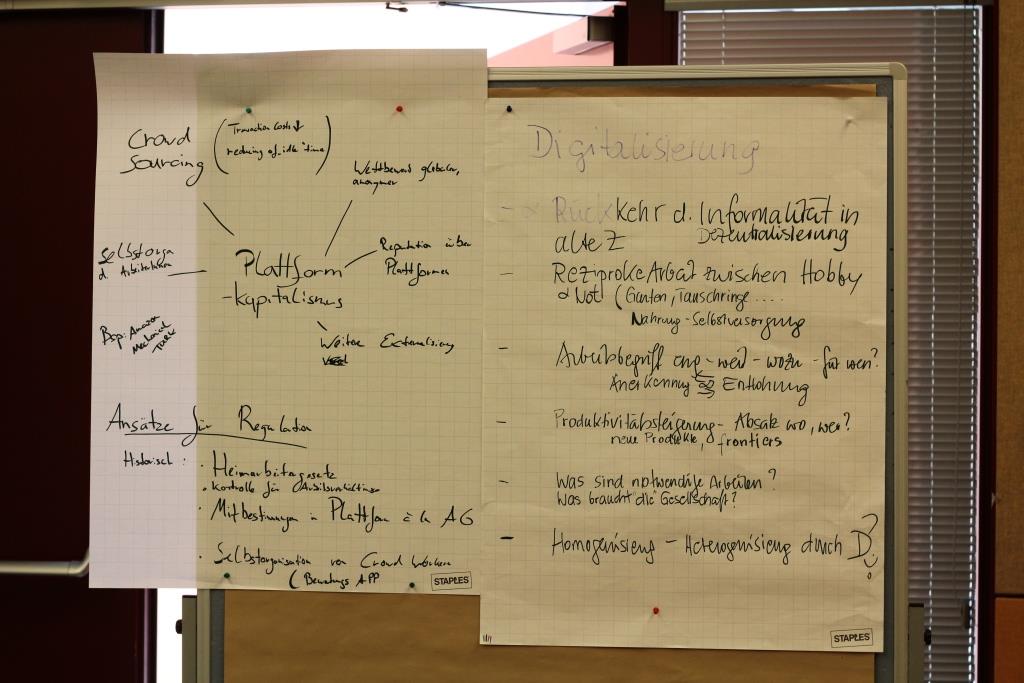 Crowd
Sourcing
(Transaction Costs ↓
reducing of idle time)
Wettbewerb globaler,
anonymer
Selbstorga
d. ArbeiterInnen
Plattform
-kapitalismus
Reputation über
Plattformen
Bsp: Amazon
Mechanical
Turk
Weitere Externalisierung
Ansätze für Regulation
Historisch:
· Heimarbeitergesetz
· Kontrolle für Arbeitsverhältnisse
· Mitbestimmung in Plattform à la AG
· Selbstorganisation von Crowd Workern
(Bewertungs APP
STAPLES
Digitalisierung
- Rückkehr d. Informalität in
alte Z Dezentralisierung
- Reziproke Arbeit zwischen Hobby
& Not (Garten, Tauschringe ....
Nahrung-Selbstversorgung
- Arbeitsbegriff eng - weit - wozu - für wen?
Anerkennung Entlohnung
- Produktivitätssteigerung - Absatz wo, wer?
neue Produkte, frontiers
- Was sind notwendige Arbeiten?
Was braucht die Gesellschaft?
- Homogenisierung - Heterogenisierung durch D?!
STAPLES